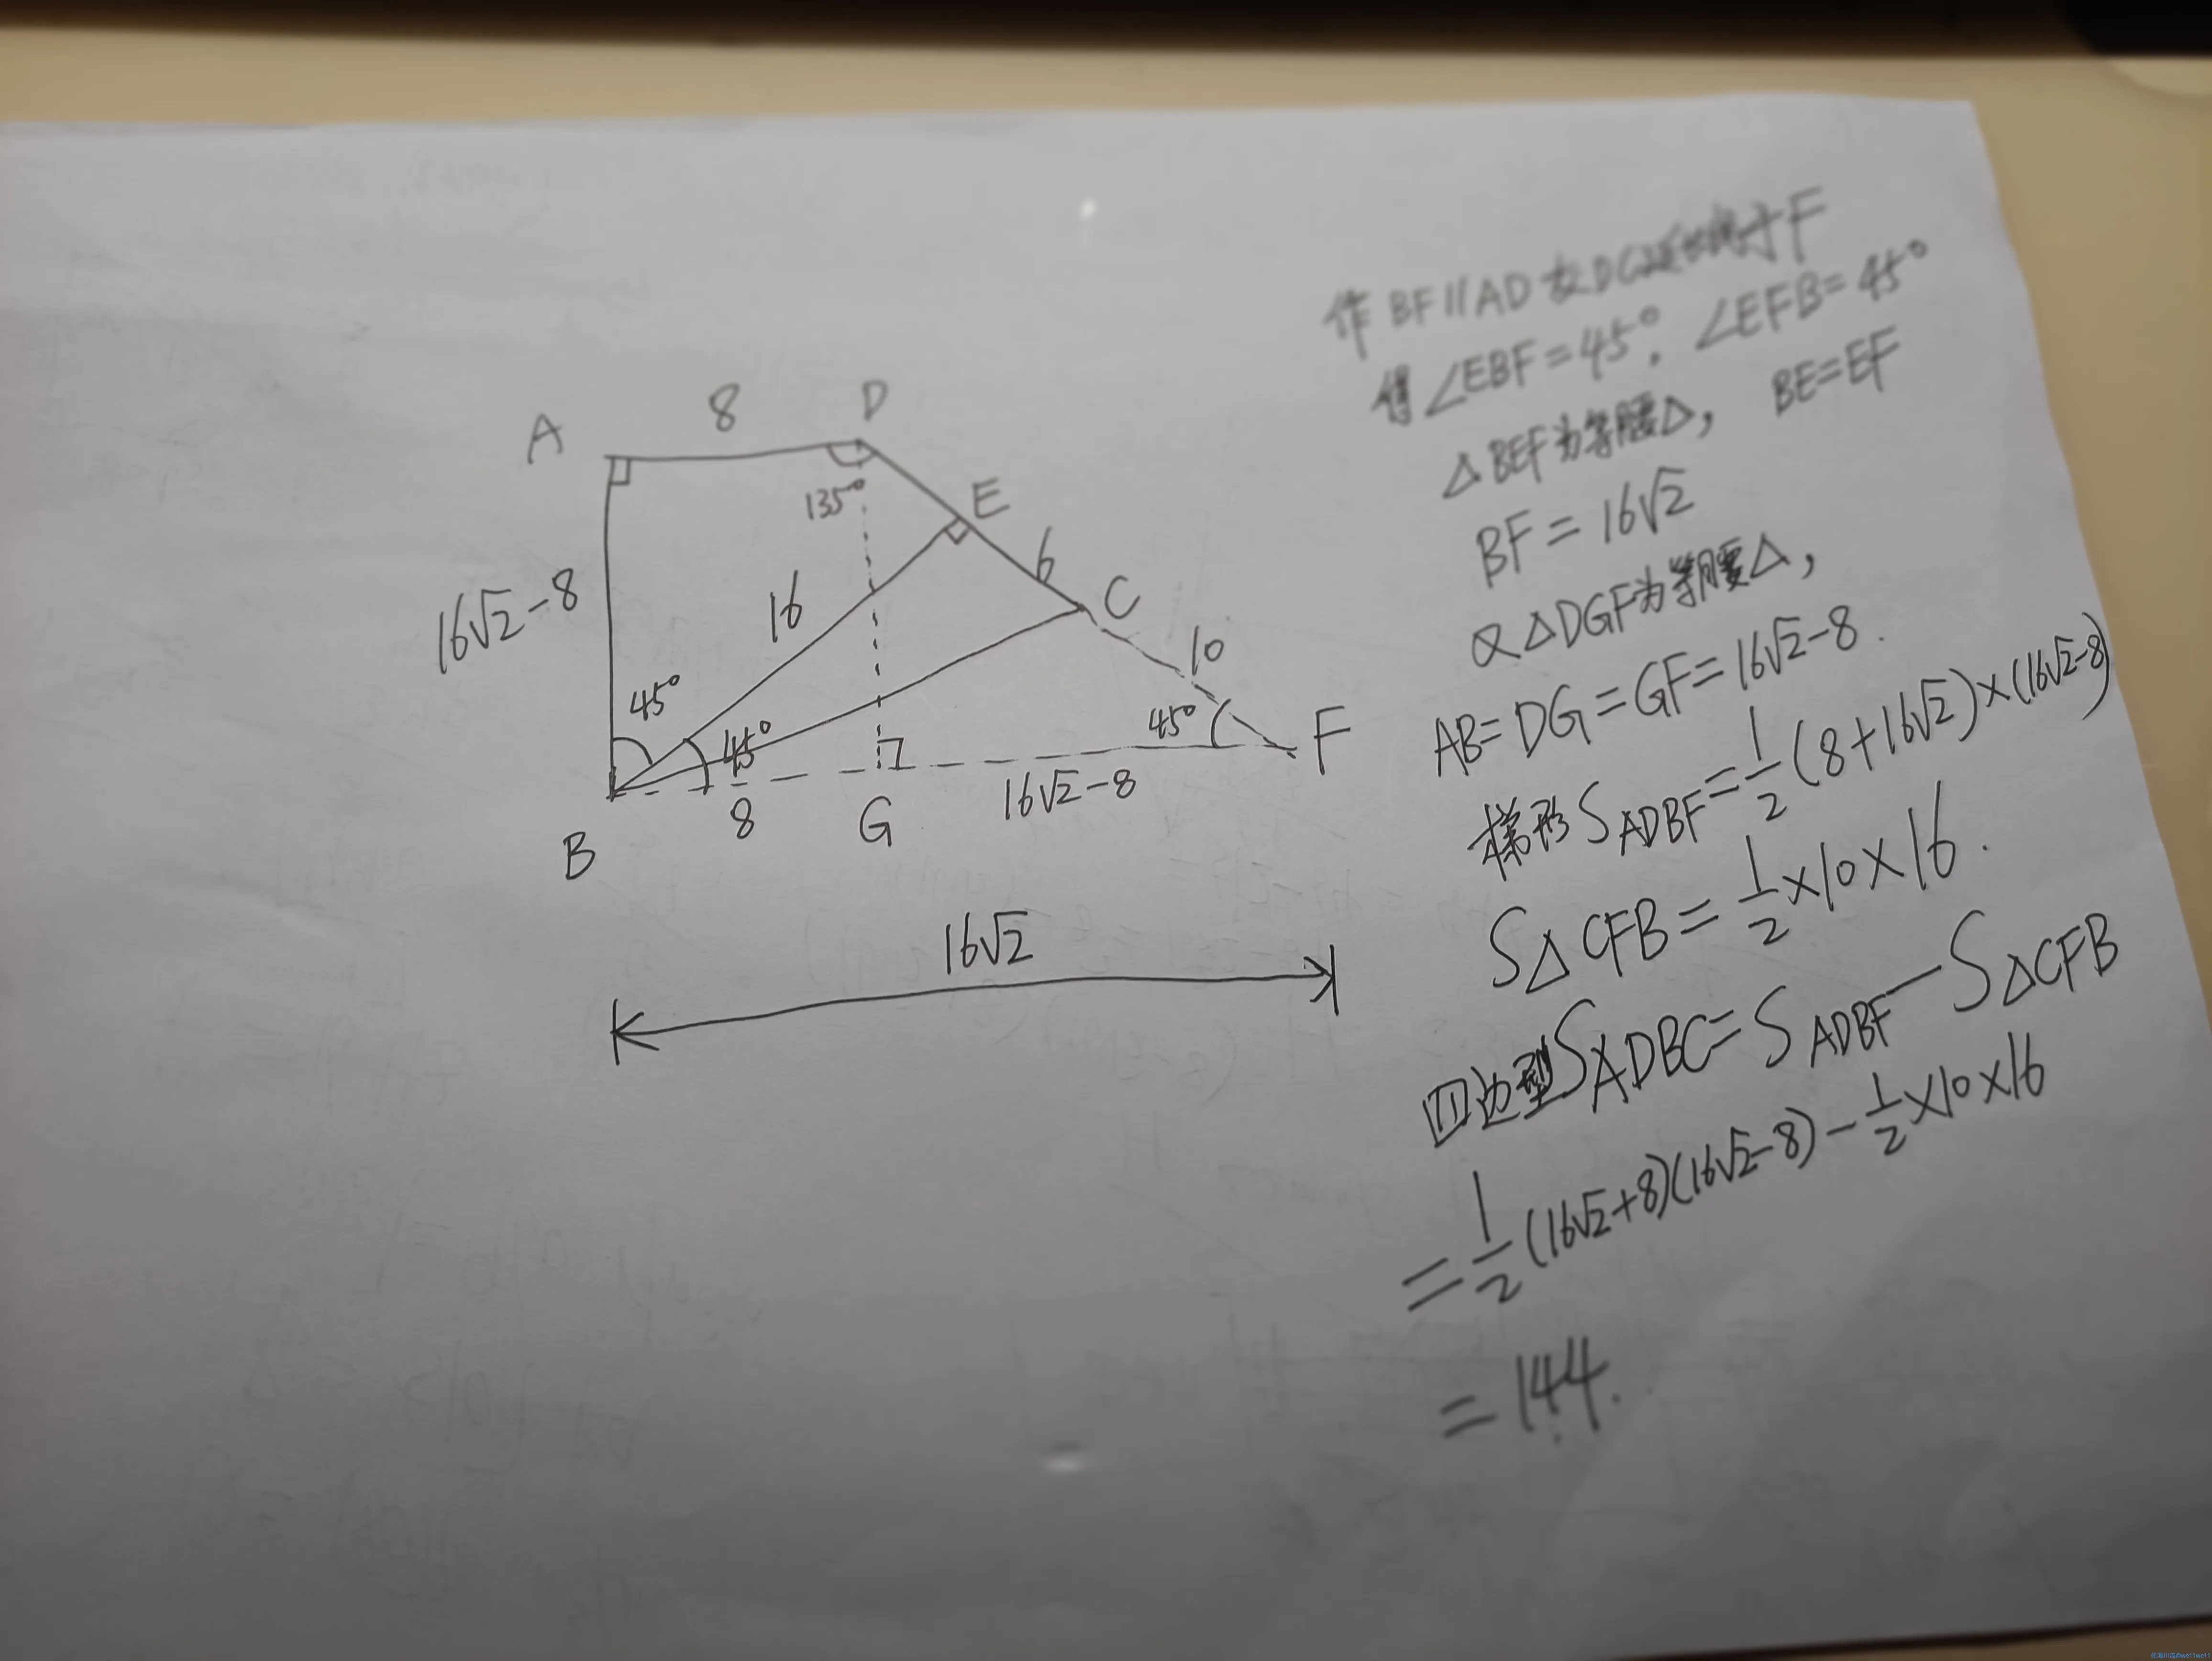 A
8
D
135°
E
6
C
16√2-8
16
10
45°
45°
45°
F
B
8
G
16√2-8
16√2
作 BF∥AD 交DC延长线于F
得∠EBF=45°. ∠EFB=45°
△BEF为等腰△, BE=EF
BF=16√2
又△DGF为等腰△,
AB=DG=GF=16√2-8.
梯形S ADBF=1/2(8+16√2)×(16√2-8)
S△CFB=1/2×10×16.
四边型S ADBC=S ADBF-S△CFB
=1/2(16√2+8)(16√2-8)-1/2×10×16
=144.